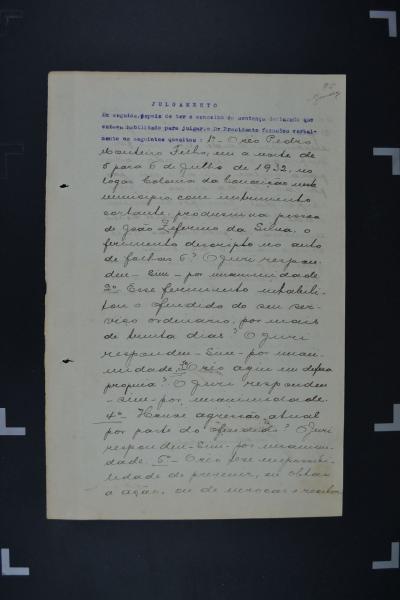 JULGAMENTO
Em seguida, depois de ter o conselho de sentença declarado que
estava habilitado para julgar, o Dr Presidente formulou verbal-
mente os seguintes quesitos: 1º- O réo Pedro
Monteiro Filho, em a noite de
5 para 6 de Julho de 1932, no
logar Colonia da Conceição neste
municipio, com instrumento
cortante, produziu na pessoa
de João Zeferino da Silva o
ferimento descripto no auto
de folhas 6? O Juri respon-
deu - Sim - por unanimidade
2º Esse ferimento inhabili-
tou o offendido do seu ser-
viço ordinario, por mais
de trinta dias? O Juri
respondeu - Sim - por unani-
midade. 3º O réo agiu em defesa
propria? O Juri respondeu
- Sim - por unanimidade.
4º- Houve agressão atual
por parte do offendido? O Juri
respondeu - Sim - por unanimi-
dade. 5º- O réo teve impossibi-
lidade de prevenir, ou obstar
a ação, ou de invocar e receber